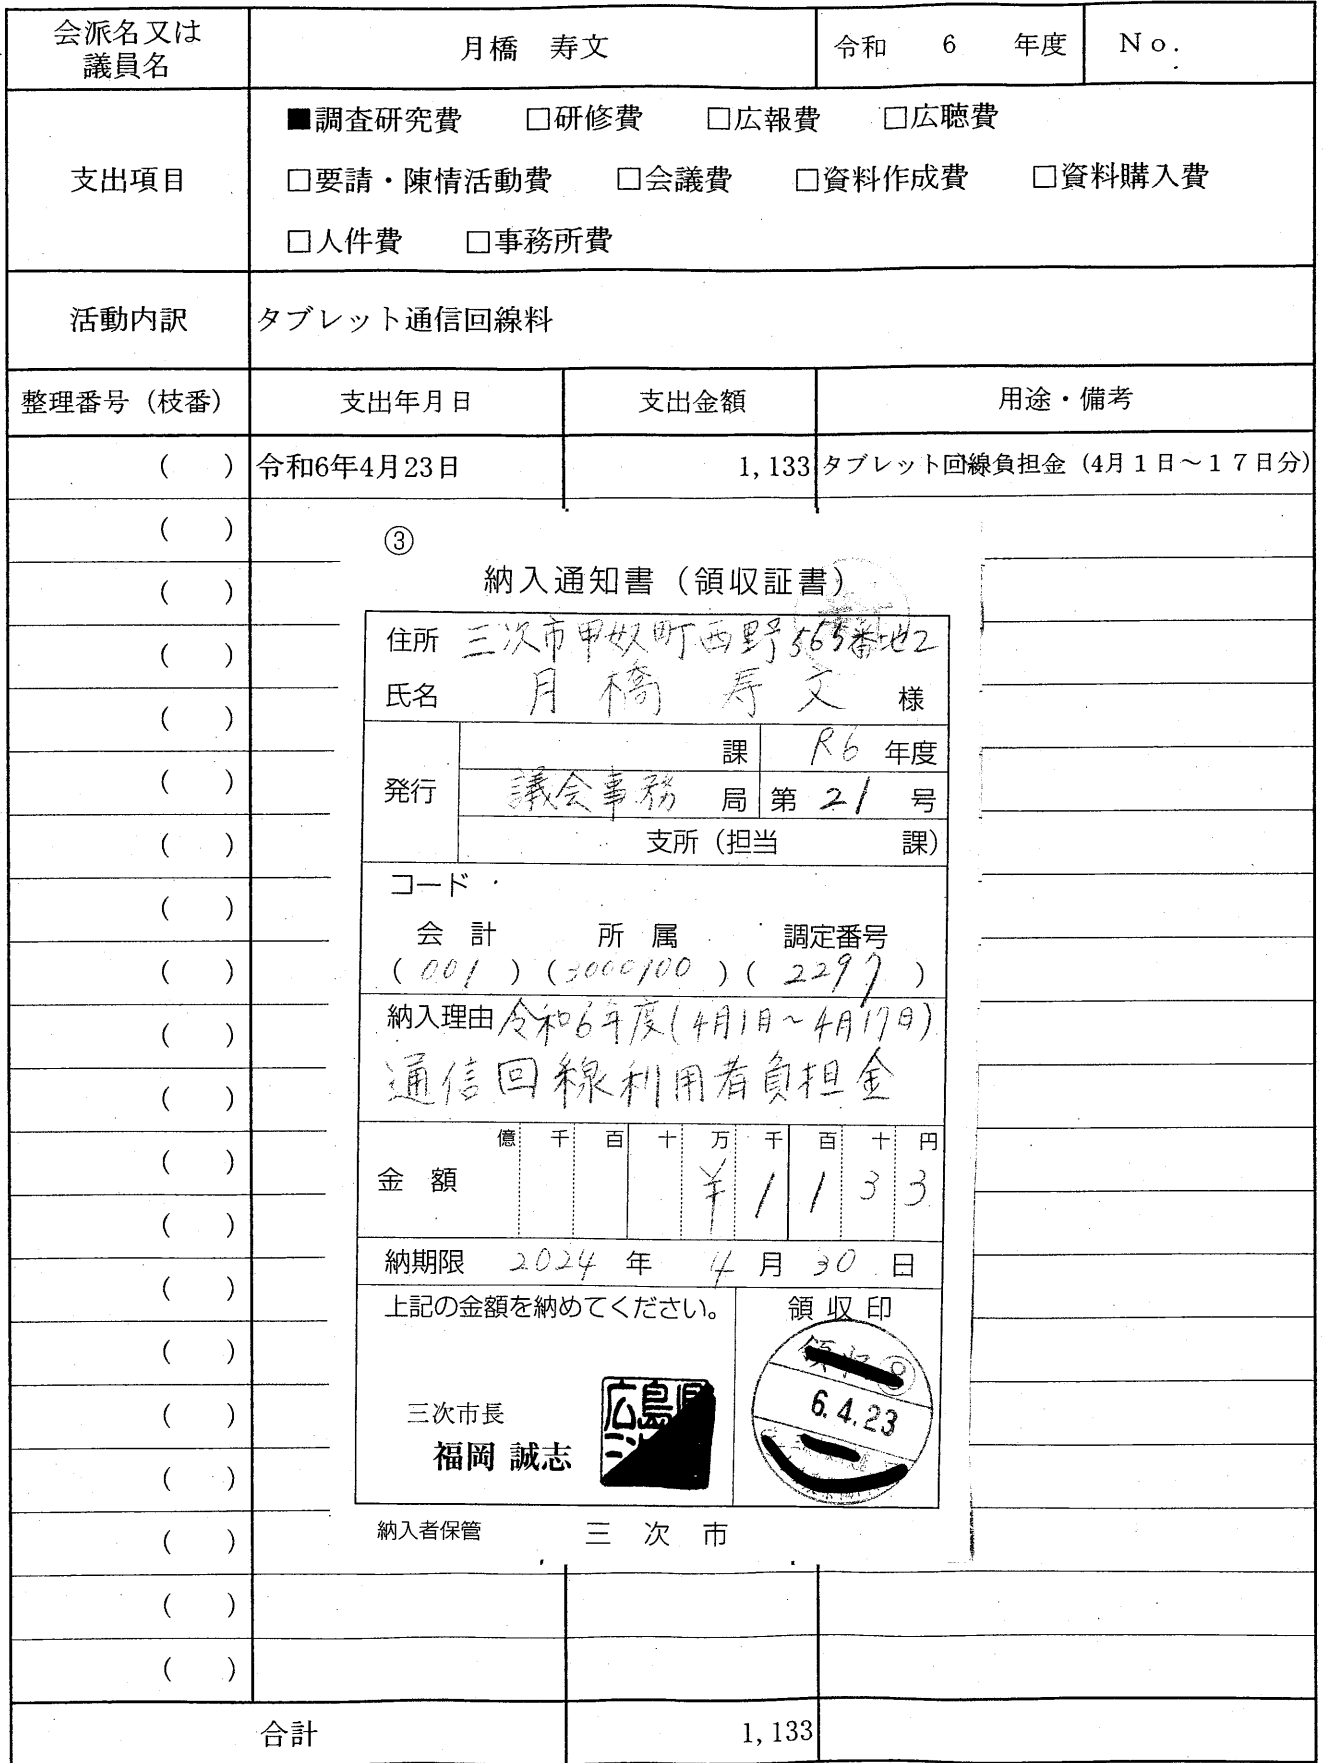 会派名又は
議員名
月橋 寿文
令和 6 年度
No.
支出項目
■調査研究費 □研修費 □広報費 □広聴費
□要請・陳情活動費 □会議費 □資料作成費 □資料購入費
□人件費 □事務所費
活動内訳
タブレット通信回線料
整理番号（枝番） 支出年月日 支出金額 用途・備考
( ) 令和6年4月23日 1,133 タブレット回線負担金（4月１日～１７日分）
( )
( )
( )
( )
( )
( )
( )
( )
( )
( )
( )
( )
( )
( )
( )
( )
( )
( )
( )
③
納入通知書（領収証書）
住所 三次市甲奴町西野565番地2
氏名 月橋 寿文 様
発行
課 R6 年度
議会事務 局 第 21 号
支所（担当 課）
コード
会計 所属 調定番号
(001) (3000100) (2297)
納入理由 令和6年度(4月1日～4月17日)
通信回線利用者負担金
億 千 百 十 万 千 百 十 円
金額 ¥1133
納期限 2024 年 4 月 30 日
上記の金額を納めてください。
領収印
6.4.23
三次市長
福岡 誠志
広島県
納入者保管 三次市
合計 1,133